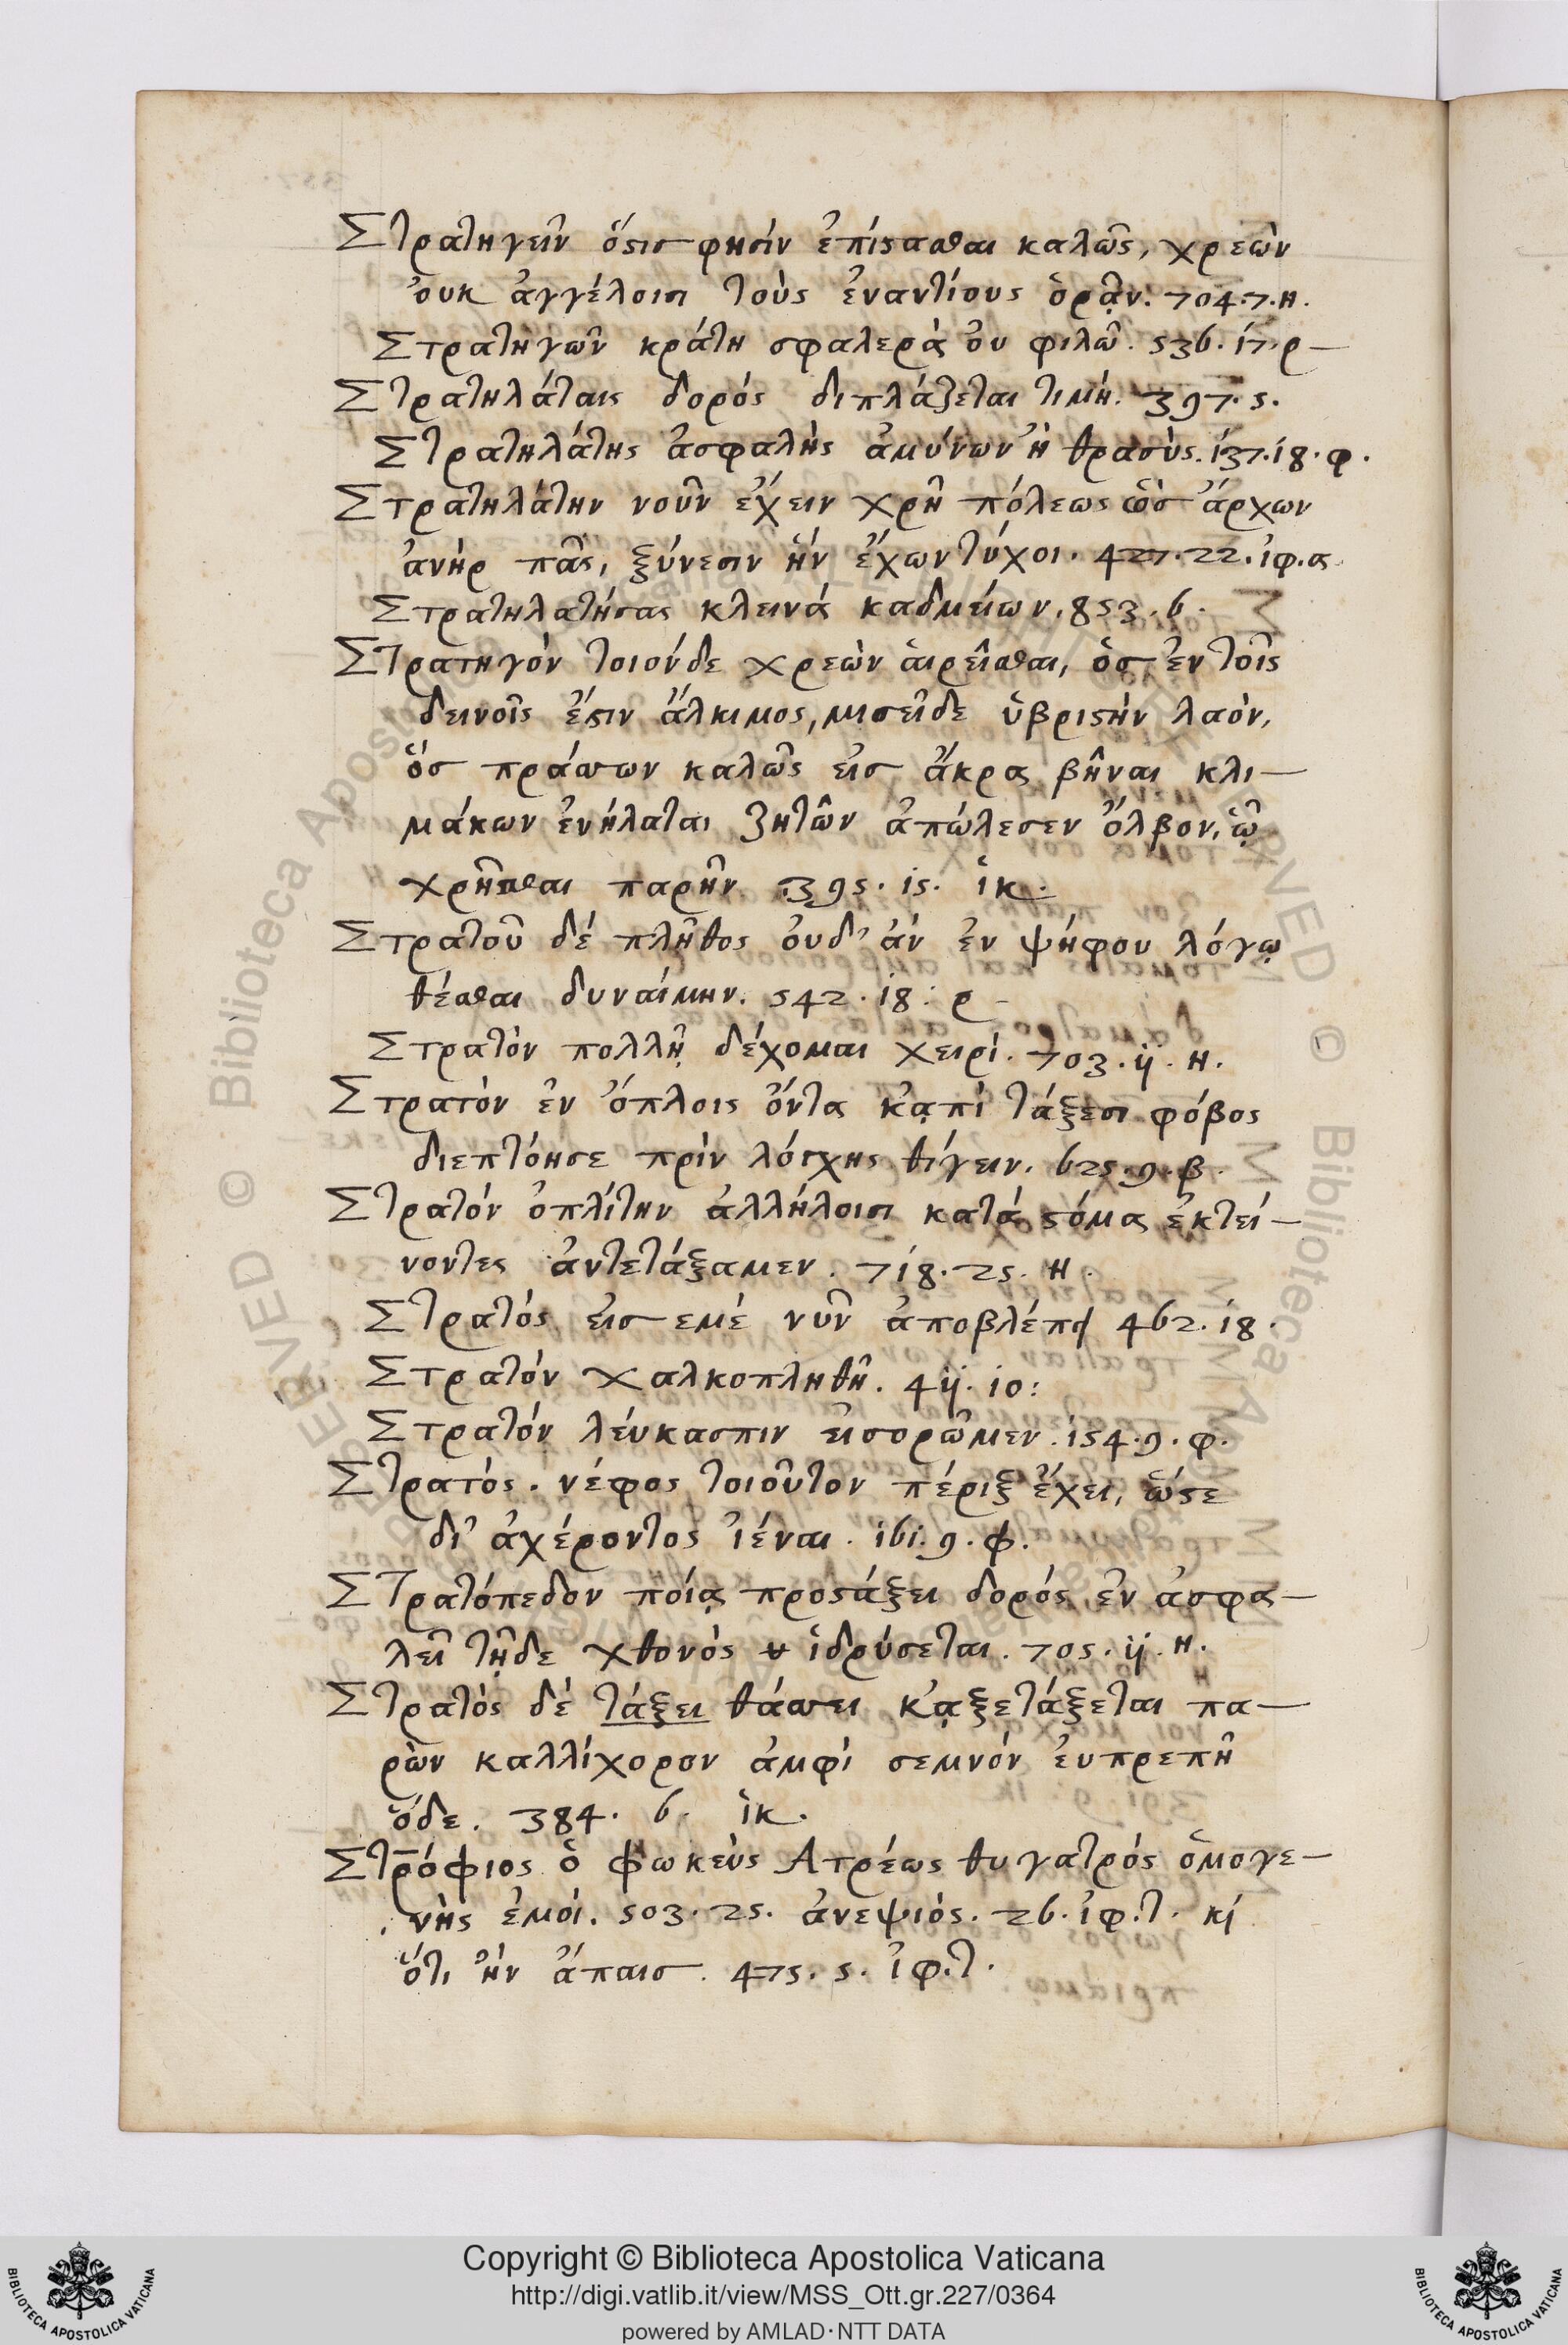 Στρατηγεῖν ὅστις φησὶν ἐπίστασθαι καλῶς, χρεὼν
ὀυκ ἀγγέλοισι τοὺς ἐναντίους ὁρᾷν. 704.7.Η.
Στρατηγῶν κράτη σφαλερὰ ὀυ φιλῶ. 536. 17. ρ—
Στρατηλάταις δορός διπλάζεται τιμή. 397. 5.
Στρατηλάτης ἀσφαλὴς ἀμείνων ἢ θρασὺς. 137. 18. φ.
Στρατηλάτην νοῦν ἔχειν χρὴ πόλεως ὡς ἄρχων
ἀνὴρ πᾶς, ξύνεσιν ἢν ἔχων τύχοι. 427. 22. ἰφ. α.
Στρατηλατήσας κλεινά καδμείων. 853. 6.
Στρατηγόν τοιόνδε χρεὼν ἁιρεῖσθαι, ὃς ἐν τοῖς
δεινοῖς ἔστιν ἄλκιμος, μισεῖδε ὑβριστὴν λαόν,
ὃς πράσσων καλῶς εἰς ἄκρα βῆναι κλι—
μάκων ἐνήλαται ζητῶν ἀπώλεσεν ὄλβον, ᾧ
χρῆσθαι παρῆν. 395. 15. ἱκ.
Στρατοῦ δέ πλῆθος ὀυδ’ ἀν ἐν ψήφου λόγῳ
θέσθαι δυναίμην. 542. 18: ρ—
Στρατὸν πολλῇ δέχομαι χειρί. 703. 11. Η.
Στρατὸν ἐν ὅπλοις ὄντα κᾀπὶ τάξεσι φόβος
διεπτόησε πρὶν λόγχης θίγειν. 625. 9. β.
Στρατόν ὁπλίτην ἀλλήλοισι κατά στόμα ἐκτεί—
νοντες ἀντετάξαμεν. 718. 25. Η.
Στρατός εἰς εμέ νῦν ἀποβλέπει 462. 18.
Στρατόν χαλκοπληθῆ. 411. 10:
Στρατόν λέυκασπιν εἰσορῶμεν. 154. 9. φ.
Στρατός. νέφος τοιοῦτον πέριξ ἔχει, ὥστε
δι’ ἀχέροντος ἰέναι. 161. 9. φ.
Στρατόπεδον ποίᾳ προστάξει δορός ἐν ἀσφα—
λεῖ τῇδε χθονός ἱδρύσεται. 705. 11. Η.
Στρατός δέ τάξει θάσσει κᾀξετάξεται πα—
ρὼν καλλίχορον ἀμφὶ σεμνόν ἐυπρεπῆ
ὅδε. 384. 6. ἱκ.
Στρόφιος ὁ φωκεὺς Ατρέως θυγατρός ὁμογε—
νὴς ἐμοί. 503. 25. ἀνεψιός. 26. ἰφ. τ. κὶ
ὅτι ἦν ἄπαις. 475. 5. ἰφ. τ.
Copyright © Biblioteca Apostolica Vaticana
http://digi.vatlib.it/view/MSS_Ott.gr.227/0364
powered by AMLAD·NTT DATA